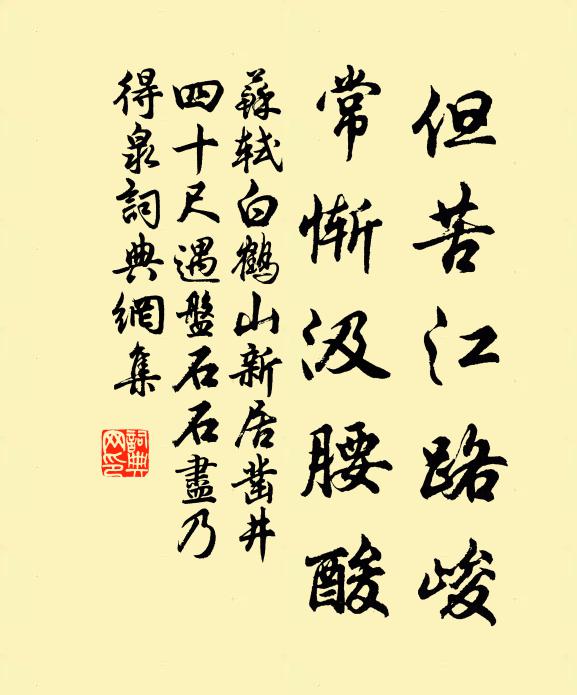 但苦江路峻
常慚汲腰酸
蘇軾白鶴山新居鑿井
四十尺遇盤石石盡乃
得泉詞典網集
詞典
网印